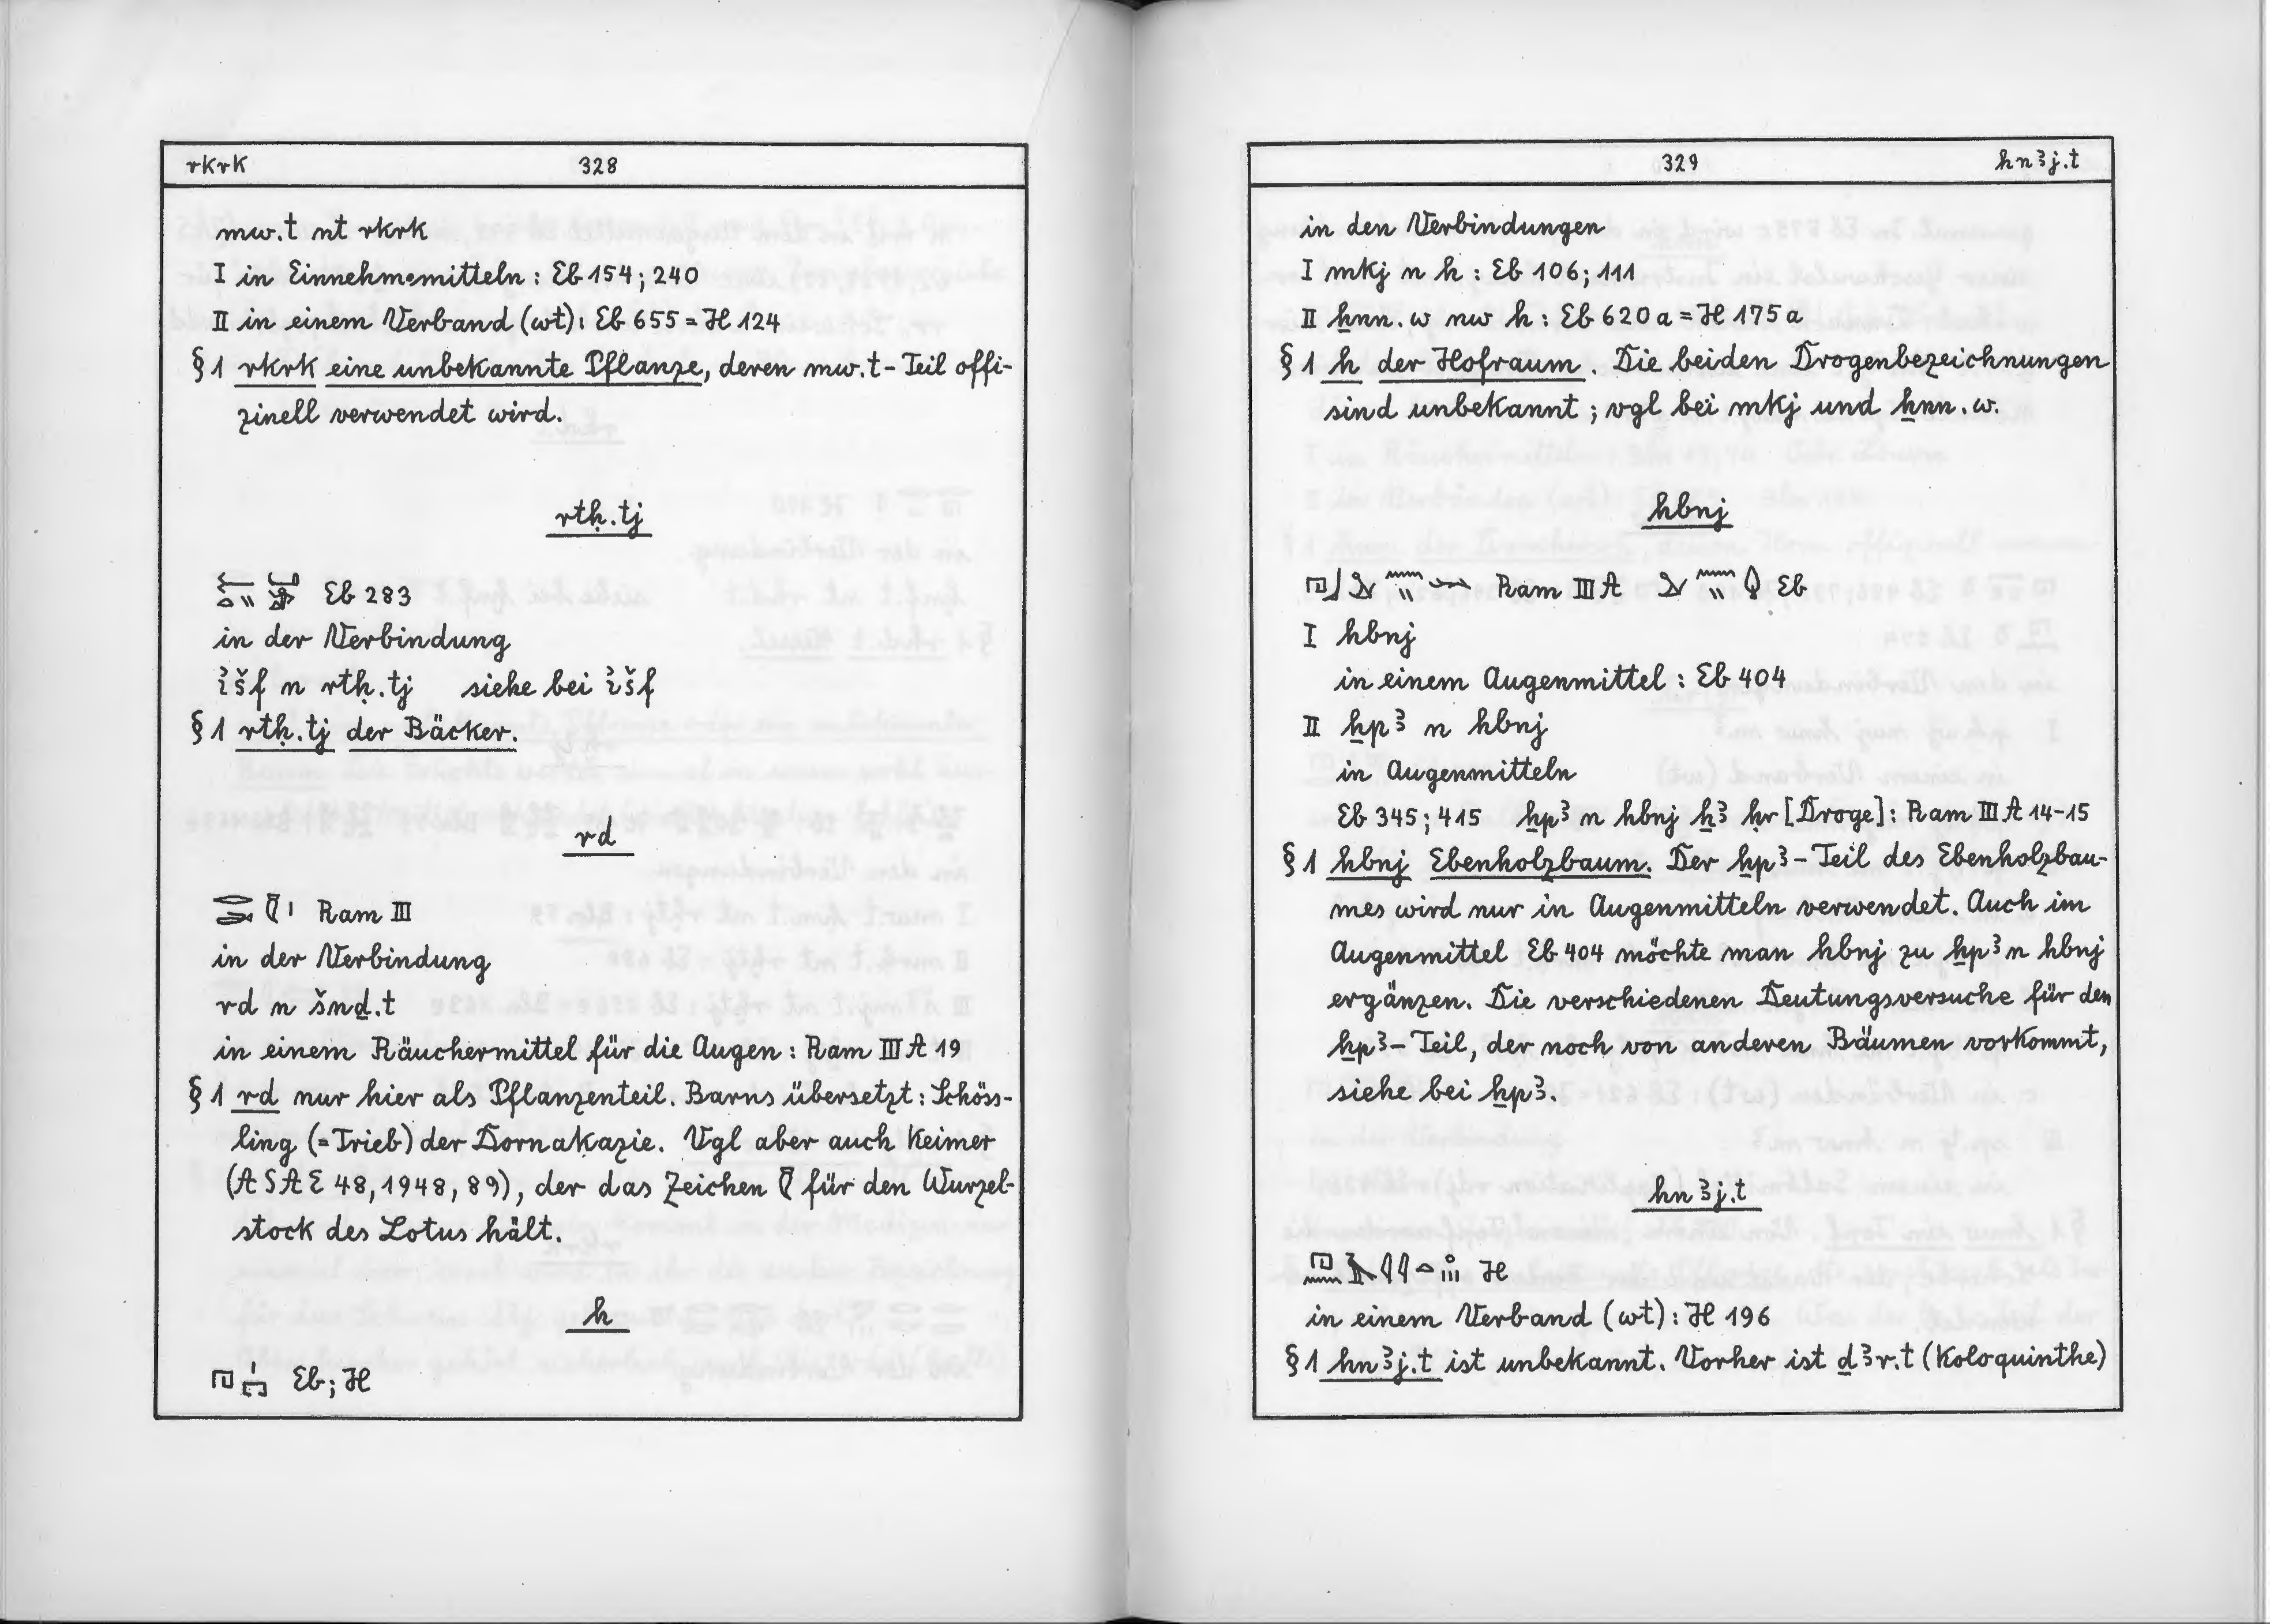 rkrk 328
mw.t nt rkrk
I in Einnehmemitteln: Eb 154; 240
II in einem Verband (wt): Eb 655 = H 124
§ 1 rkrk eine unbekannte Pflanze, deren mw.t-Teil offi-
zinell verwendet wird.
rtḥ.tj
Eb 283
in der Verbindung
ꞽšf n rtḥ.tj siehe bei ꞽšf
§ 1 rtḥ.tj der Bäcker.
rd
Ram III
in der Verbindung
rd n šnḏ.t
in einem Räuchermittel für die Augen: Ram III A 19
§ 1 rd nur hier als Pflanzenteil. Barns übersetzt: Schöss-
ling (= Trieb) der Dornakazie. Vgl aber auch Keimer
(ASAE 48, 1948, 89), der das Zeichen für den Wurzel-
stock des Lotus hält.
h
Eb; H
329 hnꜣj.t
in den Verbindungen
I mkj n h: Eb 106; 111
II ẖnn.w nw h: Eb 620 a = H 175 a
§ 1 h der Hofraum. Die beiden Drogenbezeichnungen
sind unbekannt; vgl bei mkj und ẖnn.w.
hbnj
Ram III A Eb
I hbnj
in einem Augenmittel: Eb 404
II ẖpꜣ n hbnj
in Augenmitteln
Eb 345; 415 ẖpꜣ n hbnj ẖꜣ ḥr [Droge]: Ram III A 14-15
§ 1 hbnj Ebenholzbaum. Der ẖpꜣ-Teil des Ebenholzbau-
mes wird nur in Augenmitteln verwendet. Auch im
Augenmittel Eb 404 möchte man hbnj zu ẖpꜣ n hbnj
ergänzen. Die verschiedenen Deutungsversuche für den
ẖpꜣ-Teil, der noch von anderen Bäumen vorkommt,
siehe bei ẖpꜣ.
hnꜣj.t
H
in einem Verband (wt): H 196
§ 1 hnꜣj.t ist unbekannt. Vorher ist ḏꜣr.t (Koloquinthe)